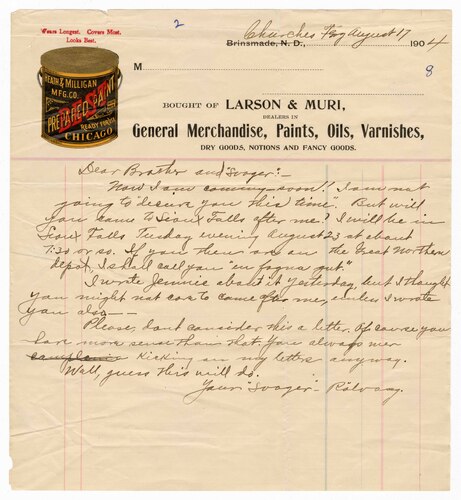 Wears Longest. Covers Most.
Looks Best.
2
Churches Ferry August 17
Brinsmade, N. D., 1904
M
8
HEATH & MILLIGAN
MFG. CO.
BEST
PREPARED PAINT
READY FOR USE
CHICAGO
BOUGHT OF LARSON & MURI,
DEALERS IN
General Merchandise, Paints, Oils, Varnishes,
DRY GOODS, NOTIONS AND FANCY GOODS.
Dear Brother and "Svoger":-
Now I am coming soon!! I am not
going to "decieve you this time". But will
you come to Sioux Falls after me? I will be in
Sioux Falls Tuesday evening August 23 at about
7:30 or so. If you then are on the Great Northern
depot, I shall call you "en fagna gut."
I wrote Jennie about it yesterday, but I thought
you might not care to come after me, unless I wrote
you also —
Please, dont consider this a letter. Of course you
have more sense than that. You always
complain kicking on my letters anyway.
Well, guess this will do.
Your "Svoger"